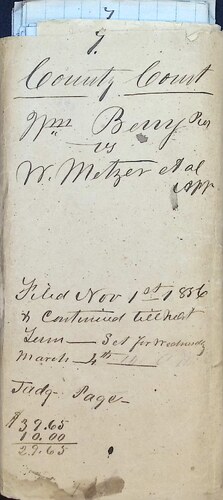 7
County Court
Wm Berry
vs
W. Metzer et al
App
Filed Nov 1st 1856
& Continued till next
Term — Set for Wednesday
March 4th
Judg Page
$39.65
10.00
29.65